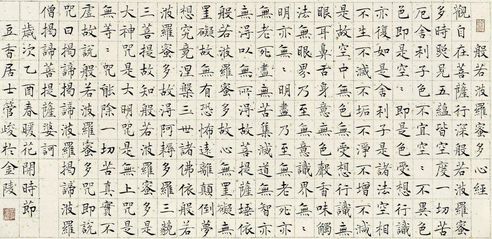 般若波羅蜜多心經
觀自在菩薩行深般若波羅蜜
多時照見五蘊皆空度一切苦
厄舍利子色不異空〻不異色
色即是空〻即是色受想行識
亦復如是舍利子是諸法空相
不生不滅不垢不淨不增不減
是故空中無色無受想行識無
眼耳鼻舌身意無色聲香味觸
法無眼界乃至無意識界無無
明亦無〻明盡乃至無老死亦
無老死盡無苦集滅道無智亦
無得以無所得故菩提薩埵依
般若波羅蜜多故心無罣礙無
罣礙故無有恐怖遠離顛倒夢
想究竟涅槃三世諸佛依般若
波羅蜜多故得阿耨多羅三藐
三菩提故知般若波羅蜜多是
大神咒是大明咒是無上咒是
無等〻咒能除一切苦真實不
虛故說般若波羅蜜多咒即說
咒曰揭諦揭諦波羅揭諦波羅
僧揭諦菩提薩婆訶
歲次乙酉春暖花開時節
豆香居士管峻於金陵